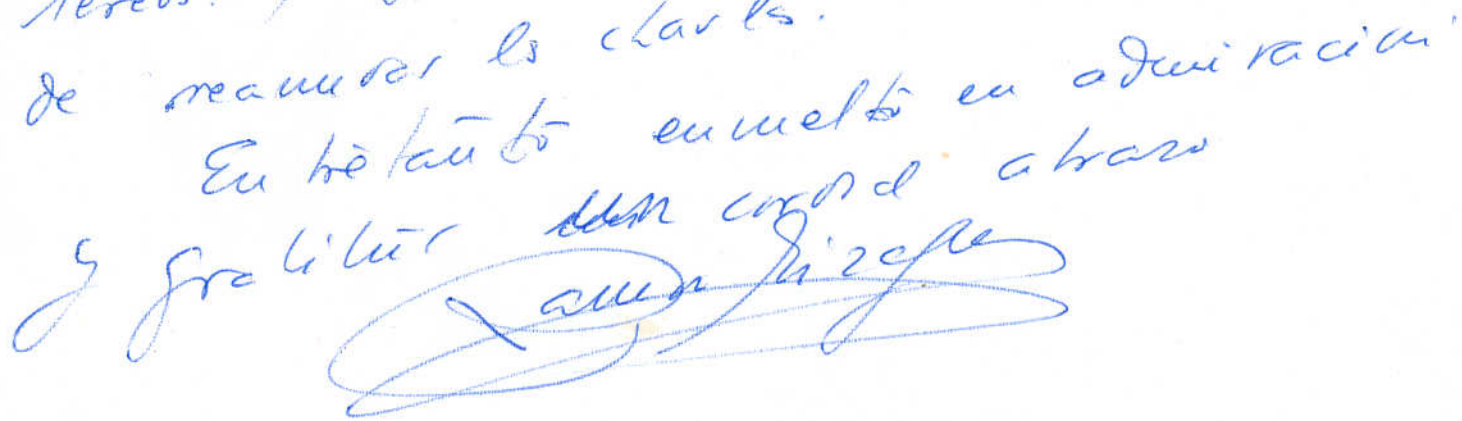 de reanudar la charla.
Entretanto envuelto en admiración
y gratitud un cordial abrazo
Ramón